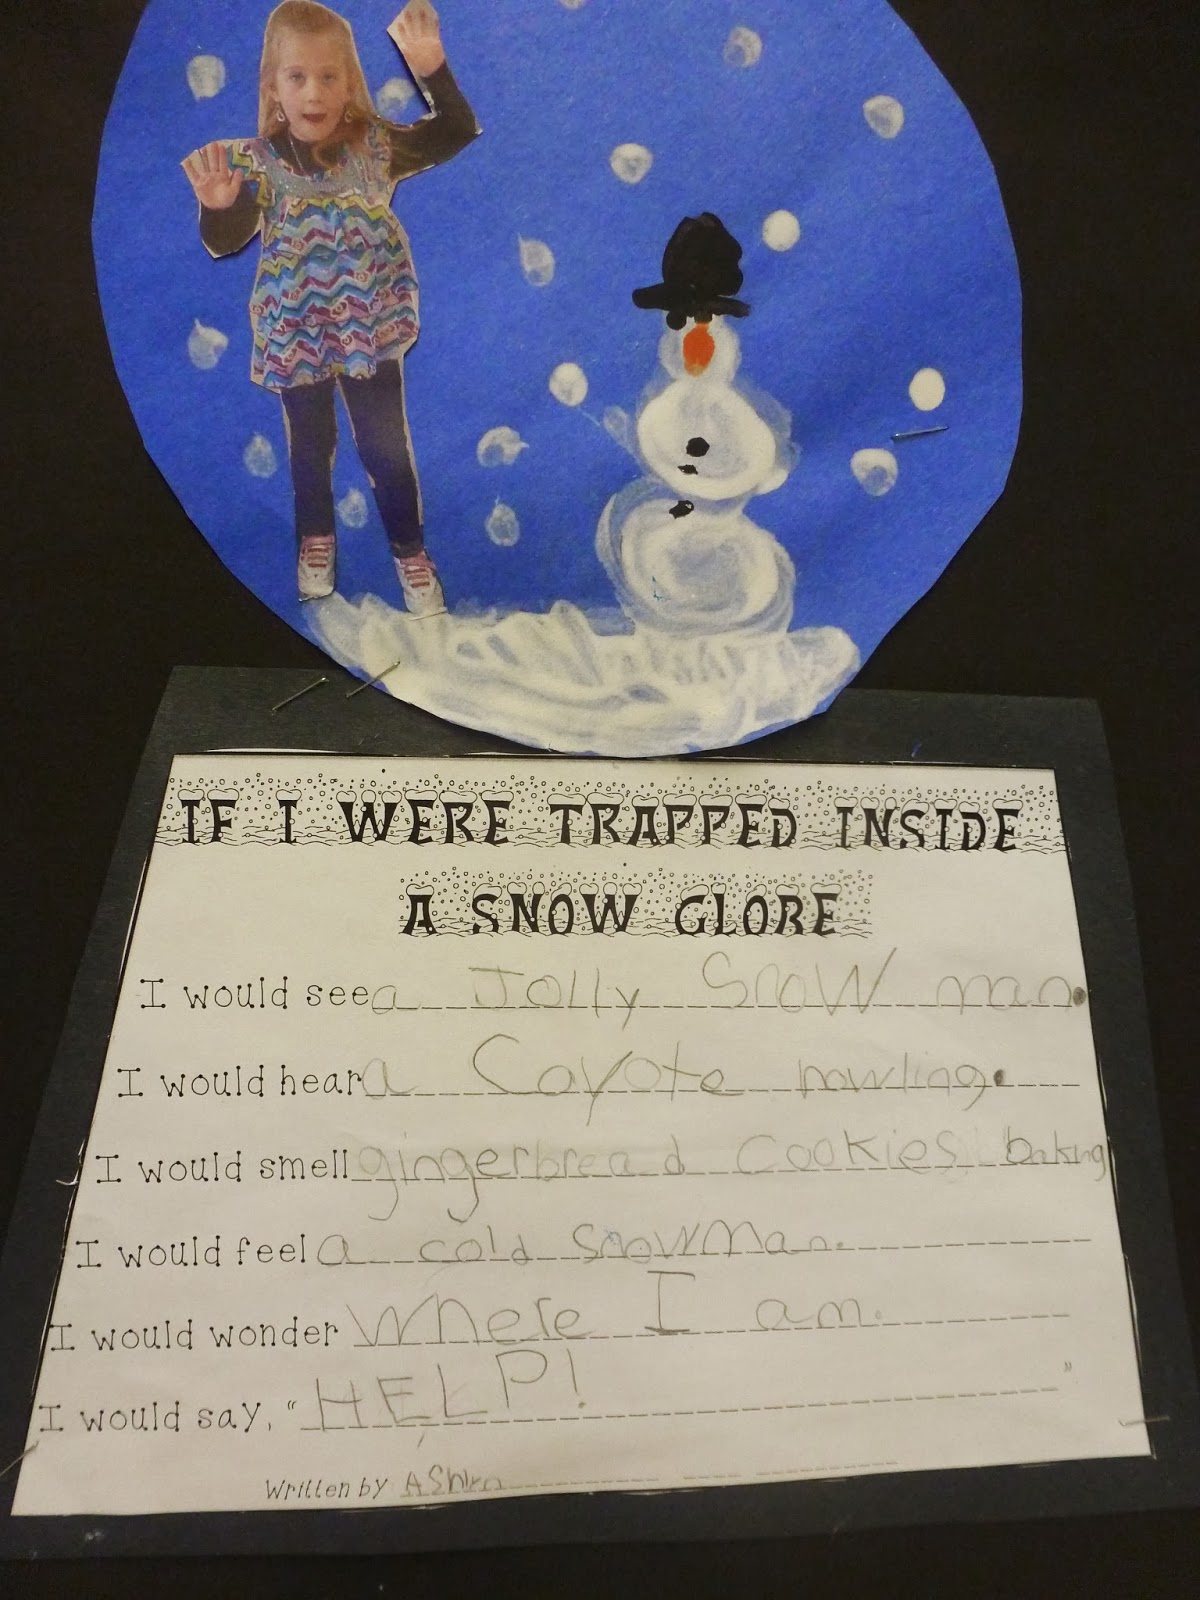 IF I WERE TRAPPED INSIDE
A SNOW GLOBE
I would see a Jolly Snow man.
I would hear a Coyote howling.
I would smell gingerbread cookies baking
I would feel a cold snowman.
I would wonder Where I am.
I would say, “HELP!”
Written by